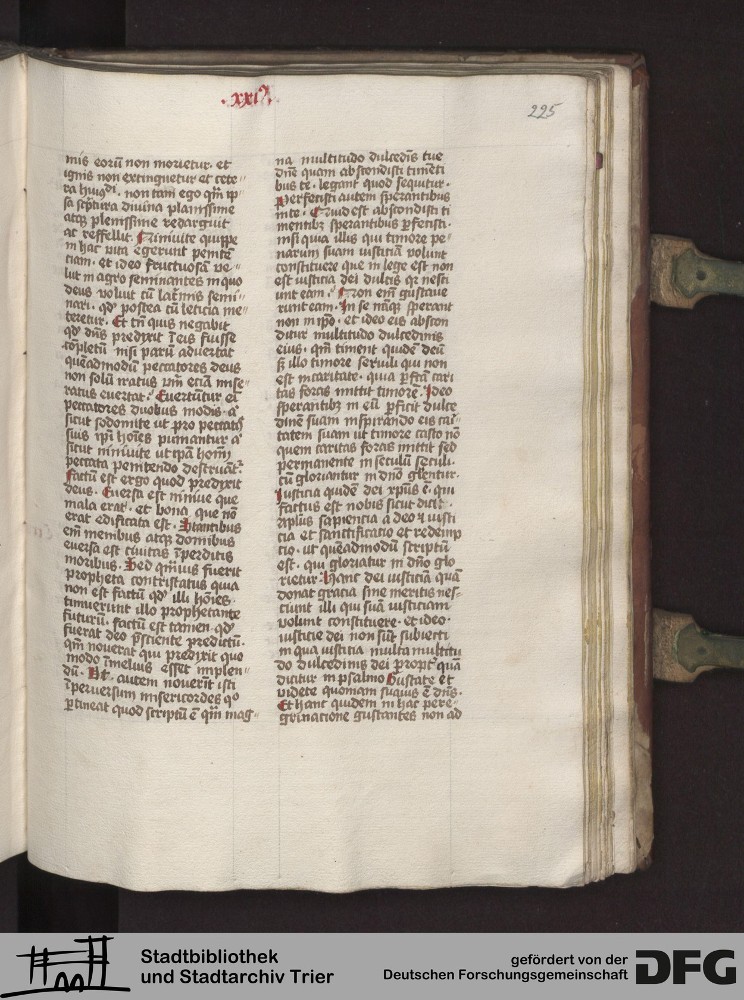 .xxi.
225
mis eorū non morietur· et
ignis non extinguetur et cete-
ra huiꝰdi. non tam ego qm̄ ip-
sa scptura diuina planissime
atqꝫ plenissime redarguit
ac reffellit. Niniuite quippe
in hac uita egerunt penitē
tiam· et ideo fructuosā ve-
lut in agro seminantes in quo
deus voluit cū lacrimis semi-
nari· qd̕ postea cū leticia me-
teretur. Et tn̄ quis negabit
qd̕ dn̄s predixit ī eis fuisse
cōpletū nisi parū aduertat
queadmodū peccatores deus
non solū iratus verū eciā mise-
ratus euertat. Euertūtur em̄
peccatores duobus modis· aut
sicut sodomite ut pro peccatis
suis ipī hoīes puniantur aut
sicut niniuite ut ipā hoīm
peccata penitendo destruāt̕.
Factū est ergo quod predixit
deus. Euersa est niniue que
mala erat· et bona que nō
erat edificata est. Stantibus
em̄ menibus atqꝫ domibus
euersa est ciuitas ī perditis
moribus. Sed qmuis fuerit
propheta contristatus quia
non est factū qd̕ illi hoīes
timuerunt illo prophetante
futurū. factū est tamen qd̕
fuerat deo p̄sciente predictū.
qm̄ nouerat qui predixit quo
modo ī melius esset implen-
dū. Vt autem nouerīt isti
ī peruersum misericordes quo
ꝑtineat quod scriptū ē qm̄ mag-
na multitudo dulcedīs tue
dn̄e quam abscondisti timēti
bus te· legant quod sequitur·
Perfecisti autem sperantibus
in te· Quid est abscondisti ti
mentibꝫ sperantibus ꝑfecisti·
nisi quia illis qui timore pe-
narum suam iusticiā volunt
constituere que in lege est non
est iusticia dei dulcis qꝛ nesci
unt eam. Non em̄ gustaue
runt eam. In se nāqꝫ sperant
non in ipō· et ideo eis abscon
ditur multitudo dulcedinis
eius· qm̄ timent quidē deū
sꝫ illo timore seruili qui non
est in caritate· quia ꝑfcā cari
tas foras mittit timorē. Ideo
sperantibꝫ in eū ꝑficit dulce
dinē suam inspirando eis cari-
tatem suam ut timore casto nō
quem caritas foras mittit sed
permanente in seculū seculi·
cū gloriantur in dn̄o glentur.
Iusticia quidē dei xpūs ē· qui
factus est nobis sicut dicit
aplus sapiencia a deo ⁊ iusti
cia et sanctificatio et redemp
tio· ut queadmodū scriptū
est· qui gloriatur in dn̄o glo
rietur. Hanc dei iusticiā quā
donat gracia sine meritis nes-
ciunt illi qui suā iusticiam
volunt constituere· et ideo·
iusticie dei non sūt subiecti
in qua iusticia multa multitu
do dulcedinis dei propter quā
dicitur in psalmo Gustate et
videte quoniam suauis ē dn̄s·
Et hanc quidem in hac pere-
grinacione gustantes non ad
Stadtbibliothek
und Stadtarchiv Trier
gefördert von der
Deutschen Forschungsgemeinschaft
DFG